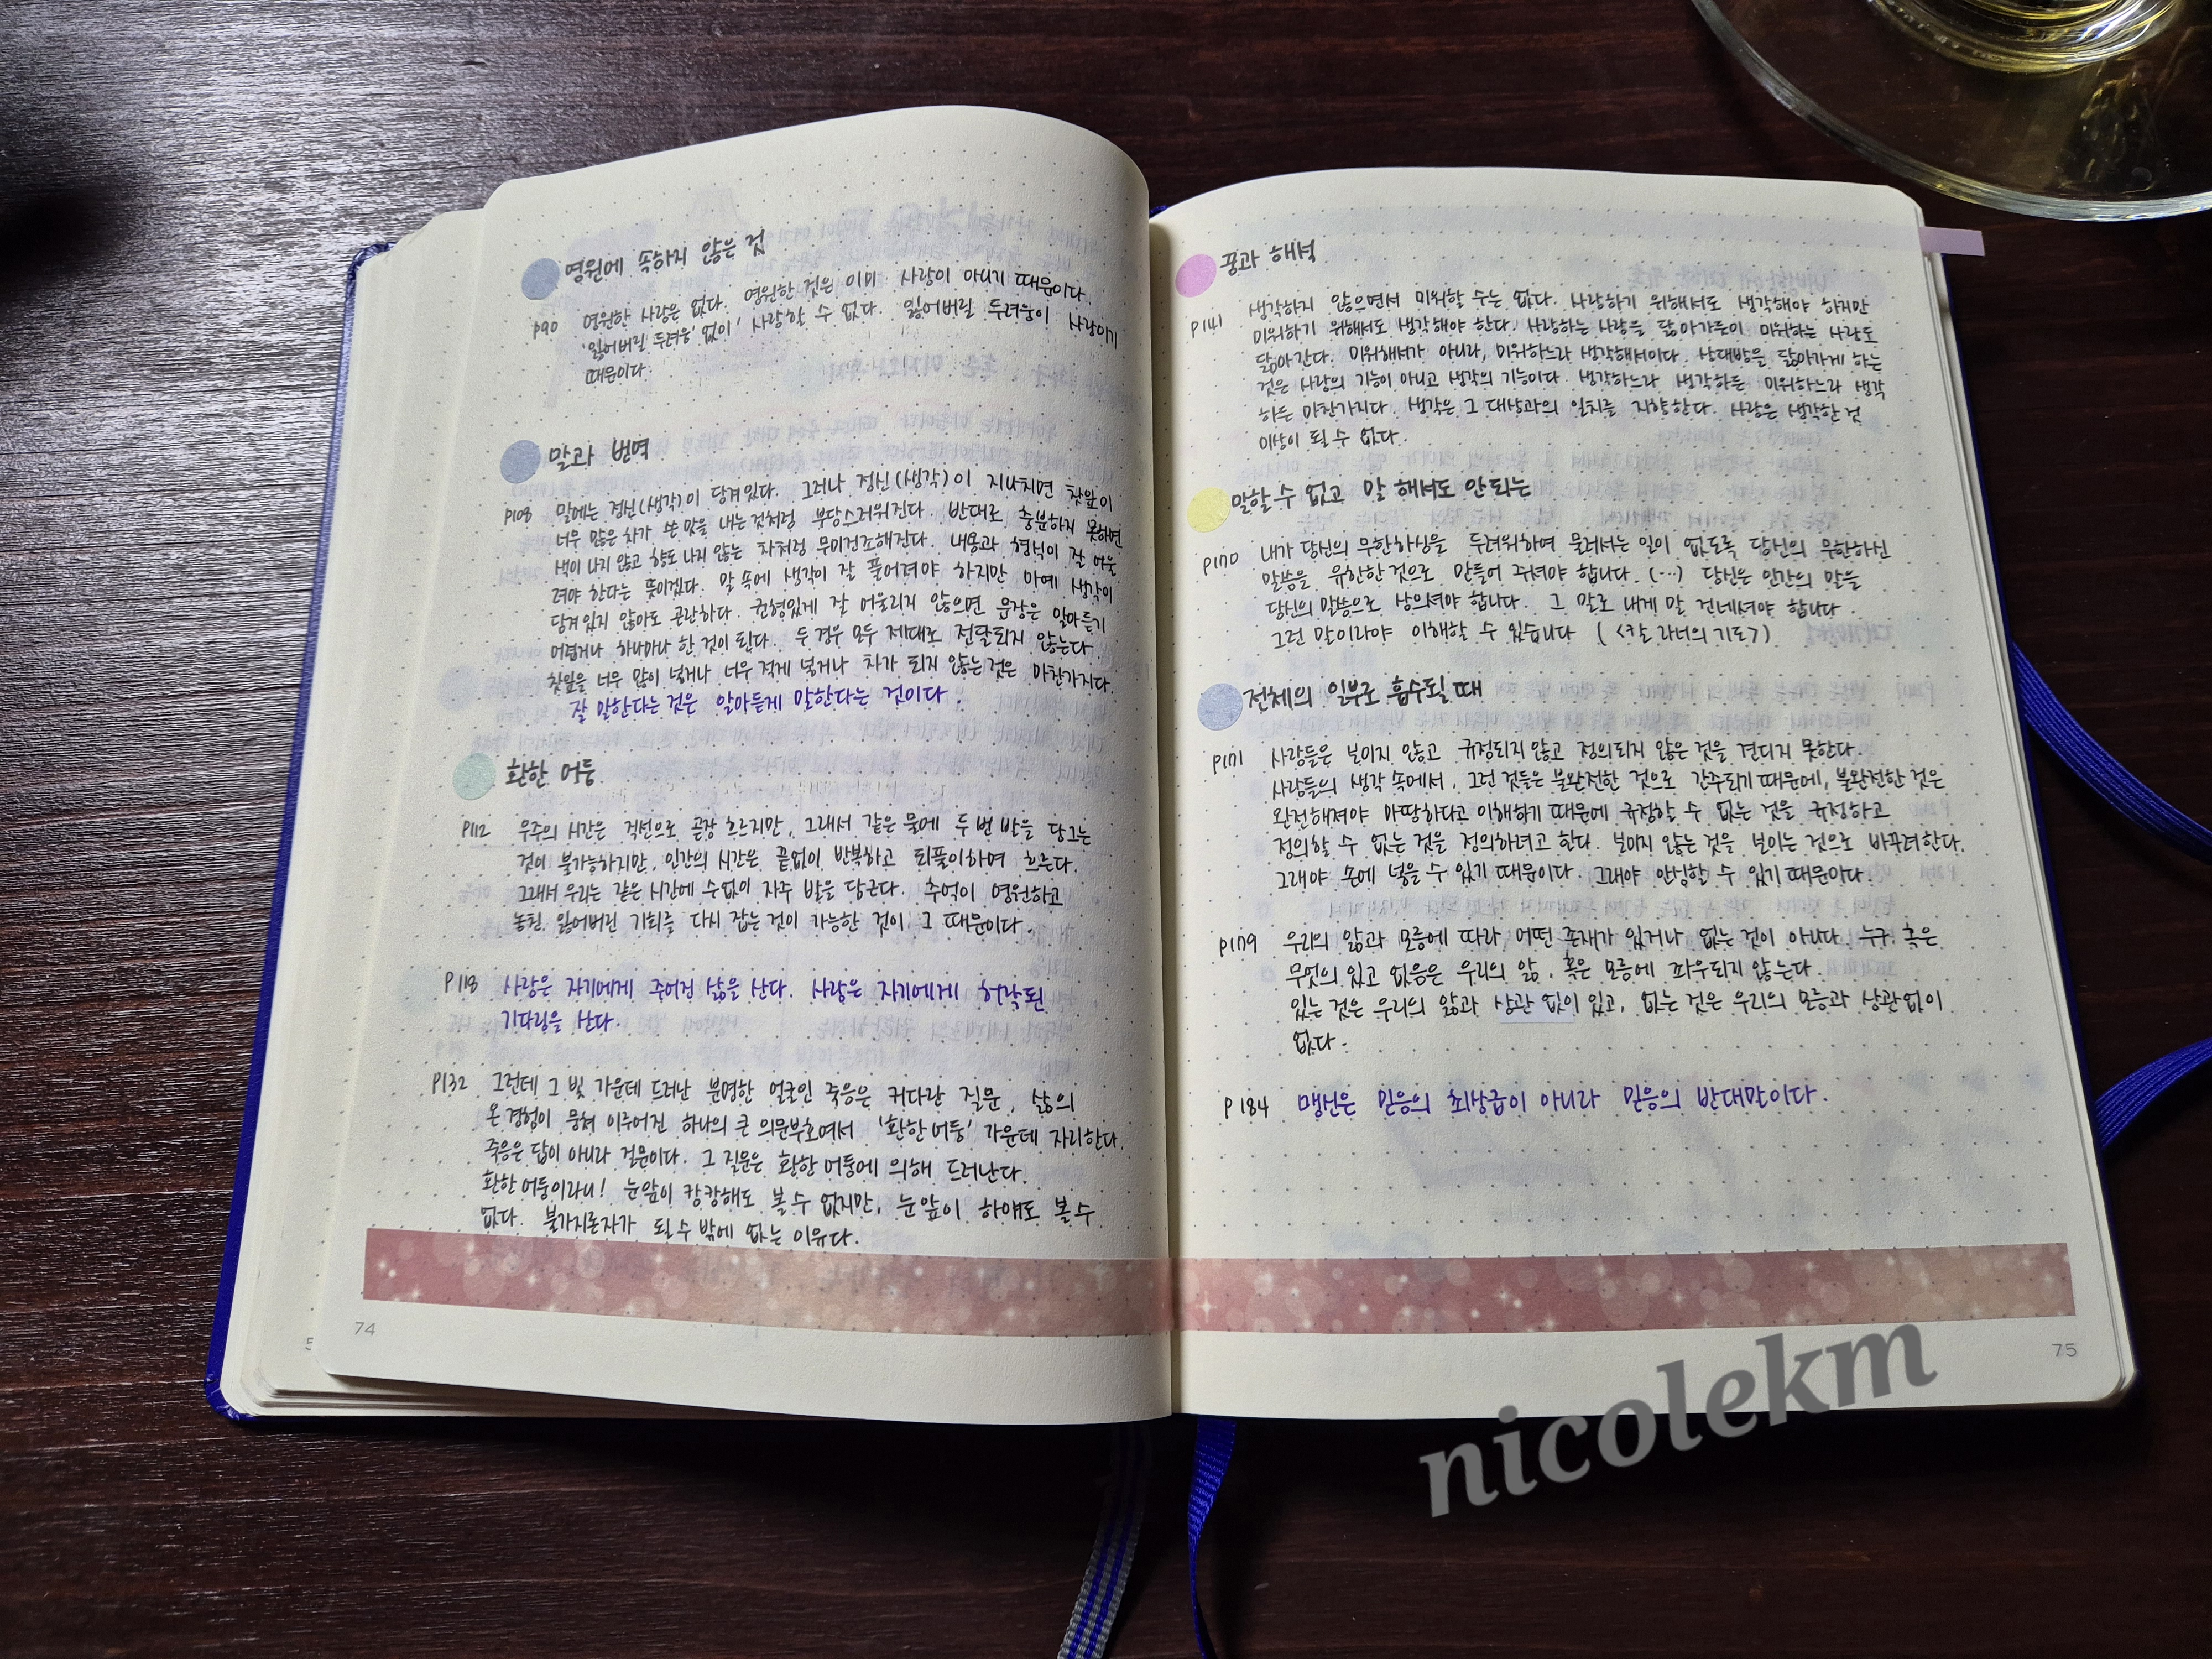 영원에 속하지 않은 것
p90 영원한 사랑은 없다. 영원한 것은 이미 사랑이 아니기 때문이다.
'잃어버릴 두려움' 없이' 사랑할 수 없다. 잃어버릴 두려움이 사랑이기
때문이다.
말과 번역
p108 말에는 정신(생각)이 담겨있다. 그러나 정신(생각)이 지나치면 찻잎이
너무 많은 차가 쓴 맛을 내는것처럼 부담스러워진다. 반대로 충분하지 못하면
색이 나지 않고 향도 나지 않는 차처럼 무미건조해진다. 내용과 형식이 잘 어울
려야 한다는 뜻이겠다. 말 속에 생각이 잘 풀어져야 하지만 아예 생각이
담겨있지 않아도 곤란하다. 균형있게 잘 어울리지 않으면 문장은 알아듣기
어렵거나 하나마나 한 것이 된다. 두 경우 모두 제대로 전달되지 않는다.
찻잎을 너무 많이 넣거나 너무 적게 넣거나 차가 되지 않는것은 마찬가지다.
잘 말한다는 것은 알아듣게 말한다는 것이다.
환한 어둠
p112 우주의 시간은 직선으로 곧장 흐르지만, 그래서 같은 물에 두 번 발을 담그는
것이 불가능하지만, 인간의 시간은 끝없이 반복하고 되풀이하며 흐른다.
그래서 우리는 같은 시간에 수없이 자주 발을 담근다. 추억이 영원하고
놓친, 잃어버린 기회를 다시 잡는 것이 가능한 것이 그 때문이다.
p118 사람은 자기에게 주어진 삶을 산다. 사람은 자기에게 허락된
기다림을 산다.
p132 그런데 그 빛 가운데 드러난 분명한 얼굴인 죽음은 커다란 질문, 삶의
온 경험이 뭉쳐 이루어진 하나의 큰 의문부호여서 '환한 어둠' 가운데 자리한다.
죽음은 답이 아니라 질문이다. 그 질문은 환한 어둠에 의해 드러난다.
환한 어둠이라니! 눈앞이 캄캄해도 볼 수 없지만, 눈앞이 하얘도 볼 수
없다. 불가지론자가 될 수 밖에 없는 이유다.
74
꿈과 해석
p141 생각하지 않으면서 미워할 수는 없다. 사랑하기 위해서도 생각해야 하지만
미워하기 위해서도 생각해야 한다. 사랑하는 사람을 닮아가듯이 미워하는 사람도
닮아간다. 미워해서가 아니라, 미워하느라 생각해서이다. 상대방을 닮아가게 하는
것은 사랑의 기능이 아니고 생각의 기능이다. 생각하느라 생각하든 미워하느라 생각
하든 마찬가지다. 생각은 그 대상과의 일치를 지향한다. 사람은 생각한 것
이상이 될 수 없다.
말할 수 없고 말 해서도 안 되는
p170 내가 당신의 무한하심을 두려워하여 물러서는 일이 없도록 당신의 무한하신
말씀을 유한한 것으로 만들어 주셔야 합니다. (…) 당신은 인간의 말을
당신의 말씀으로 삼으셔야 합니다. 그 말로 내게 말 건네셔야 합니다.
그런 말이라야 이해할 수 있습니다 (<칼 라너의 기도>)
전체의 일부로 흡수될 때
p171 사람들은 보이지 않고 규정되지 않고 정의되지 않은 것을 견디지 못한다.
사람들의 생각 속에서, 그런 것들은 불완전한 것으로 간주되기 때문에, 불완전한 것은
완전해져야 마땅하다고 이해하기 때문에 규정할 수 없는 것을 규정하고
정의할 수 없는 것을 정의하려고 한다. 보이지 않는 것을 보이는 것으로 바꾸려한다.
그래야 손에 넣을 수 있기 때문이다. 그래야 안심할 수 있기 때문이다.
p179 우리의 앎과 모름에 따라 어떤 존재가 있거나 없는 것이 아니다. 누구 혹은
무엇의 있고 없음은 우리의 앎, 혹은 모름에 좌우되지 않는다.
있는 것은 우리의 앎과 상관 없이 있고, 없는 것은 우리의 모름과 상관없이
없다.
p184 맹신은 믿음의 최상급이 아니라 믿음의 반대말이다.
75
nicolekm